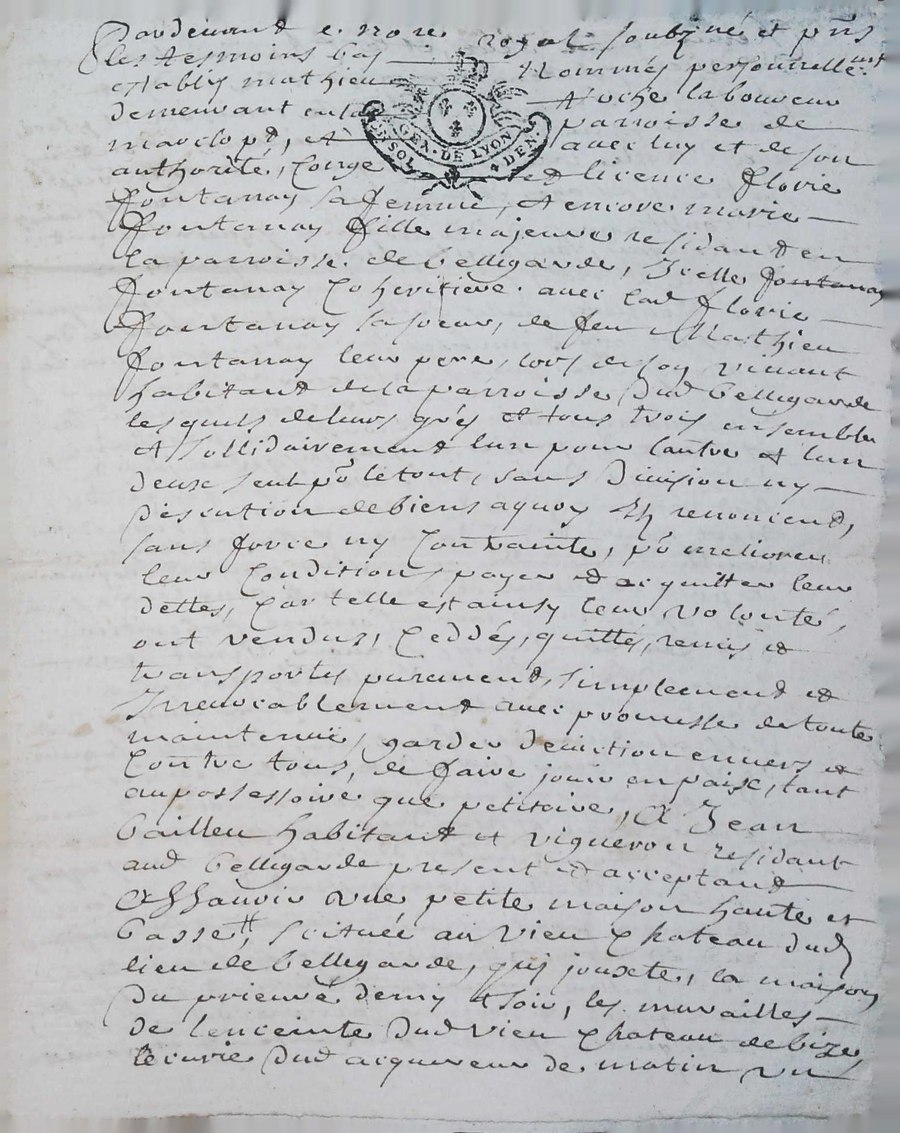 Pardevant e nore royal soubzné et pñts
les tesmoins bas nommés personnellemt
establis mathieu
demeurant en la laboureur
marclopt, et parroisse de
authorité, Conge avec luy et de son
GEN · DE LYON
SOL 4 DEN ·
et licence florie
fontanay sa femme, et encore marie
fontanay fille majeure residant en
la parroisse de bellegarde, Icelle fontanay
fontanay Coheritiere avec lad florie
fontanay sa soeur, de feu Mathieu
fontanay leur pere, lors de son vivant
habitant de la parroisse dud bellegarde
lesquels de leurs grés et tous trois ensemble
et sollidairement lun pour lautre et lun
deux seul po le tout, sans division ny
discution de biens a quoy ils renoncend,
sans force ny Contrainte, po meliorer
leur Condition, payer et acquitter leur
dettes, Car telle est ainsy leur volonté,
ont vendus, Ceddés, quittés, remis et
transportés purement, simplement et
Irrevocablement avec promesse de toute
maintenue, garder deviction envers et
Contre tous, de faire jouir en paise, tant
au possessoire que petitoire, A Jean
bailleu habitant et vigneron residant
aud bellegarde present et acceptand
Assavoir une petite maison haute et
basse, scituée au vieu Chateau dud
lieu de bellegarde, quj jouxte, la maison
du prieuré de mj et soir, les murailles
de lenceinte dud vieu Chateau de bize,
lecurie dud acquereur de matin un